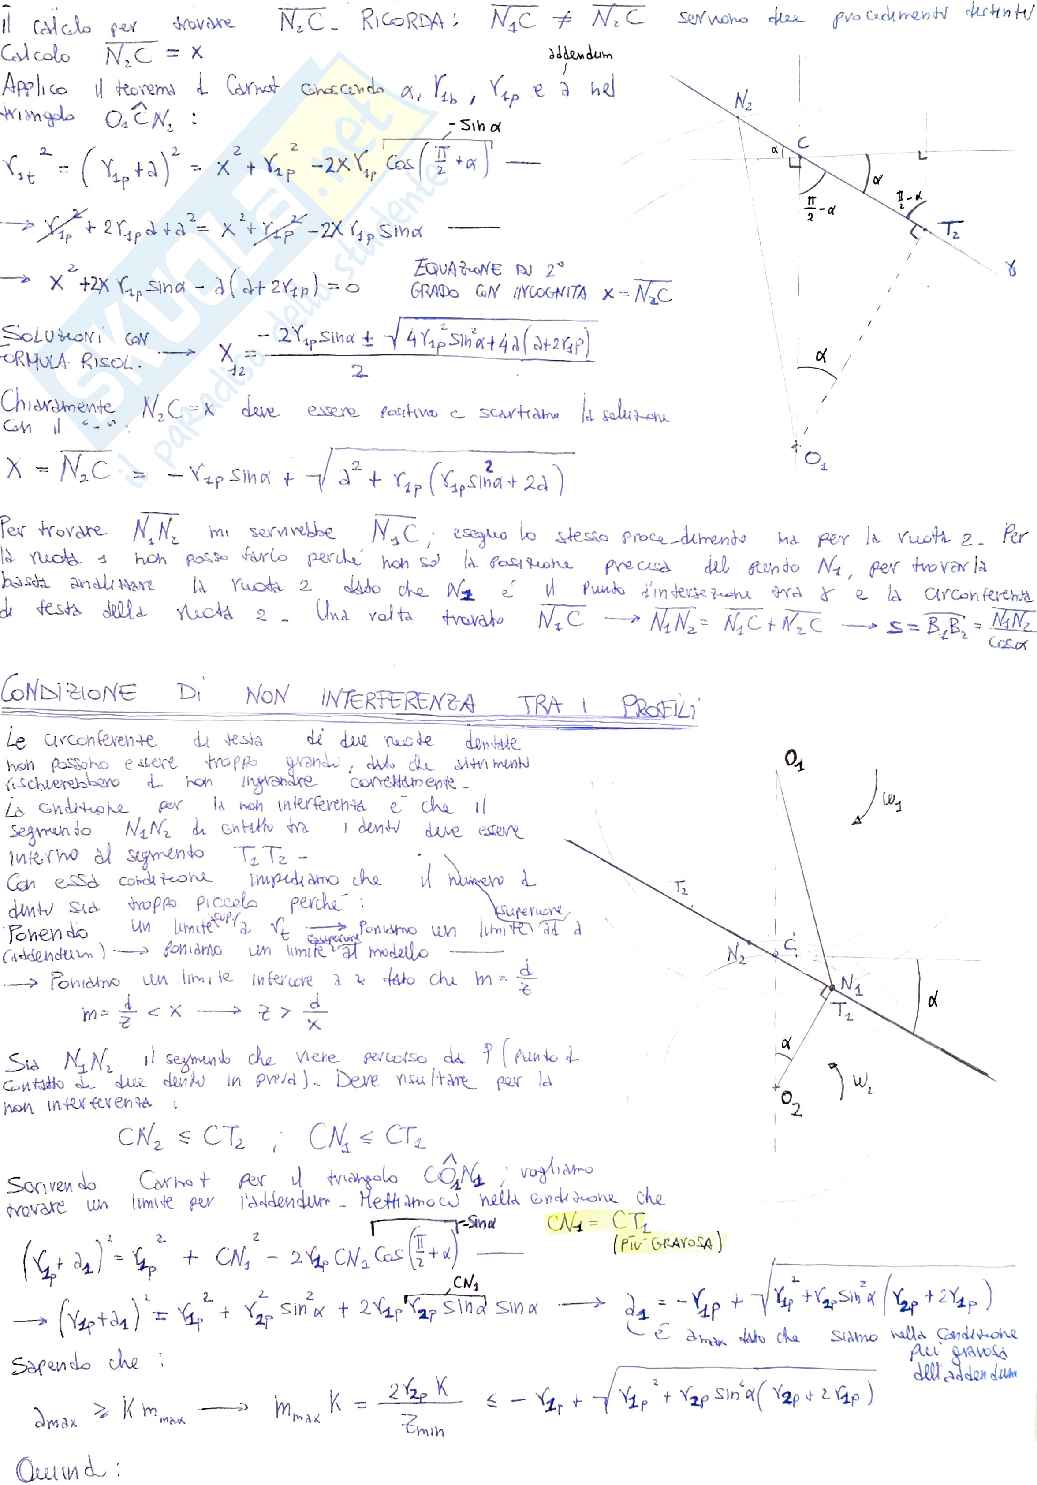 Il calcolo per trovare N₂C. RICORDA: N₁C ≠ N₂C servono due procedimenti distinti
Calcolo N₂C = x
Applico il teorema di Carnot conoscendo α, r1b, r1p e a nel
addendum
triangolo O₁ĈN₂:
r1t² = (r1p+a)² = x² + r1p² - 2x r1p cos(π/2+α)
-sinα
→ r1p² + 2r1p a + a² = x² + r1p² - 2x r1p sinα
→ x² + 2x r1p sinα - a(a+2r1p) = 0
EQUAZIONE DI 2°
GRADO CON INCOGNITA x = N₂C
SOLUZIONI CON
FORMULA RISOL. → x12 = (-2r1p sinα ± √(4r1p² sin²α + 4a(a+2r1p))) / 2
Chiaramente N₂C = x deve essere positivo e scartiamo la soluzione
con il "-".
x = N₂C = -r1p sinα + √(a² + r1p(r1p sin²α + 2a))
N₂
C
α
α
π/2-α
π/2-α
T₂
γ
α
O₁
SKUOLA.net
il paradiso dello studente
Per trovare N₁N₂ mi servirebbe N₁C; eseguo lo stesso proce-dimento ma per la ruota 2. Per
la ruota 1 non posso farlo perché non so la posizione precisa del punto N₁, per trovarla
basta analizzare la ruota 2 dato che N₁ è il punto d'intersezione tra γ e la circonferenza
di testa della ruota 2. Una volta trovato N₁C → N₁N₂ = N₁C + N₂C → s = B₁B₂ = N₁N₂/cosα
CONDIZIONE DI NON INTERFERENZA TRA I PROFILI
Le circonferenze di testa di due ruote dentate
non possono essere troppo grandi, dato che altrimenti
rischierebbero di non ingranare correttamente.
La condizione per la non interferenza è che il
segmento N₁N₂ di contatto tra i denti deve essere
interno al segmento T₁T₂.
Con essa condizione impediamo che il numero di
denti sia troppo piccolo perché:
Ponendo un limite sup. a rt → Poniamo un limite superiore ad a
(addendum) → poniamo un limite superiore al modello
→ Poniamo un limite inferiore a z dato che m = d/z
m = d/z < x → z > d/x
Sia N₁N₂ il segmento che viene percorso da P (punto di
contatto di due denti in presa). Deve risultare per la
non interferenza:
CN₂ ≤ CT₂ ; CN₁ ≤ CT₁
O₁
ω₁
T₂
N₂
C
N₁
T₁
α
α
O₂
ω₂
Scrivendo Carnot per il triangolo CÔ₁N₁; vogliamo
trovare un limite per l'addendum. Mettiamoci nella condizione che
CN₁ = CT₁
(PIÙ GRAVOSA)
(r1p+a₁)² = r1p² + CN₁² - 2r1p CN₁ cos(π/2+α)
-sinα
→ (r1p+a₁)² = r1p² + r2p² sin²α + 2r1p r2p sinα sinα → a₁ = -r1p + √(r1p² + r2p sin²α (r2p + 2r1p))
CN₁
È amax dato che siamo nella condizione
più gravosa
dell'addendum
Sapendo che:
amax ≥ K mmax → mmax K = 2r2p K / Zmin ≤ -r1p + √(r1p² + r2p sin²α (r2p + 2r1p))
Quindi: